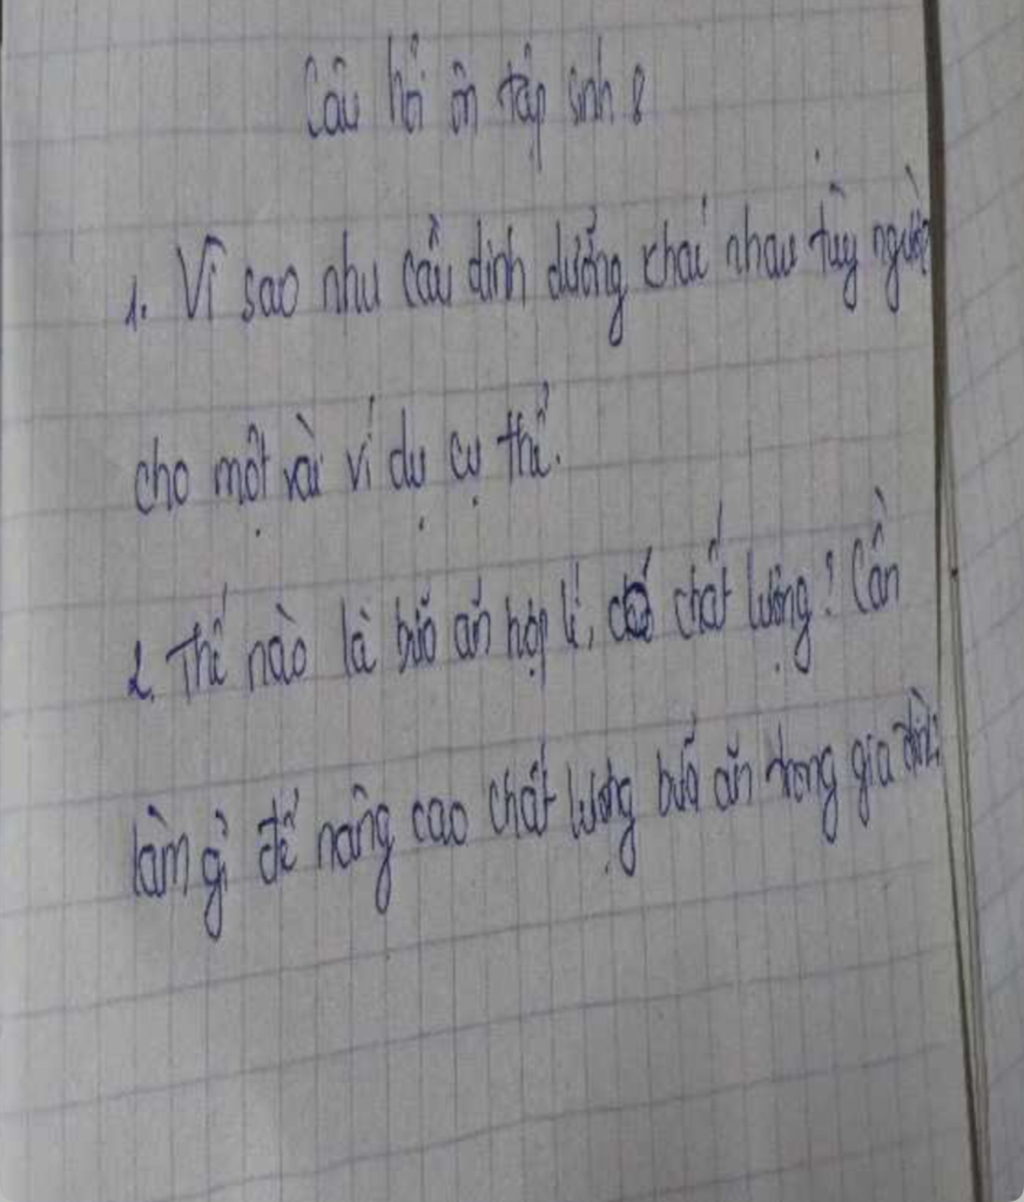 Câu hỏi ôn tập sinh 8
1. Vì sao nhu cầu dinh dưỡng khác nhau tùy người?
cho một vài ví dụ cụ thể.
2. Thế nào là bữa ăn hợp lí, có chất lượng? Cần
làm gì để nâng cao chất lượng bữa ăn trong gia đình?